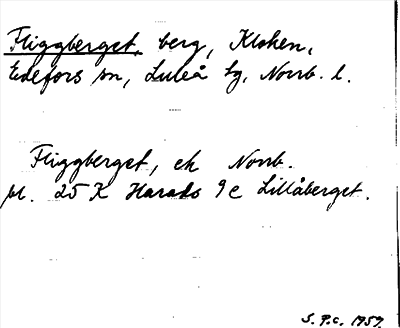 Fliggberget, berg, Klohen,
Edefors sn, Luleå tg, Norrb. l.
Fliggberget, ek Norrb.
bl. 25 K Harads 9 c Lillåberget.
S. P.C. 1959.